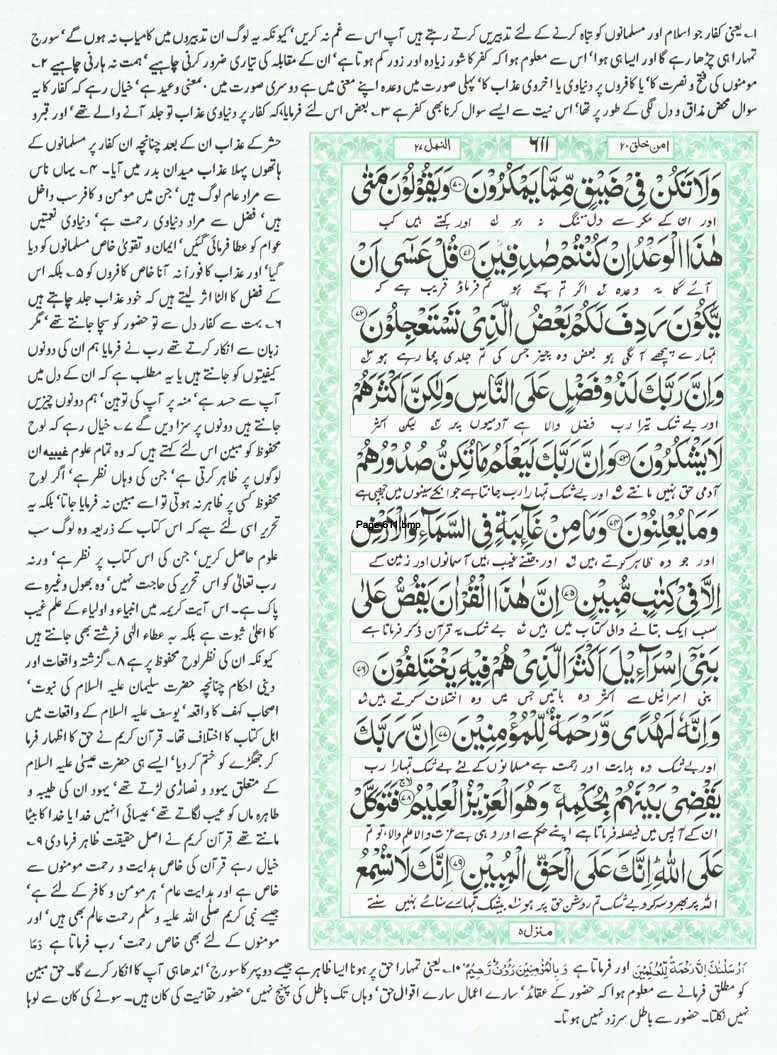 ۱۔ یعنی کفار جو اسلام اور مسلمانوں کو تباہ کرنے کے لئے تدبیریں کرتے رہتے ہیں آپ اس سے غم نہ کریں‘ کیونکہ یہ لوگ ان تدبیروں میں کامیاب نہ ہوں گے‘ سورج
تمہارا ہی چڑھا رہے گا اور ایسا ہی ہوا‘ اس سے معلوم ہوا کہ کفر کا شور زیادہ اور زور کم ہوتا ہے‘ ان کے مقابلہ کی تیاری ضرور کرنی چاہیے‘ ہمت نہ ہارنی چاہیے ۲۔
مومنوں کی فتح و نصرت کا‘ یا کافروں پر دنیاوی یا اخروی عذاب کا‘ پہلی صورت میں وعدہ اپنے معنی میں ہے دوسری صورت میں ۰ بمعنی وعید ہے‘ خیال رہے کہ کفار کا یہ
سوال محض مذاق و دل لگی کے طور پر تھا‘ اس نیت سے ایسے سوال کرنا بھی کفر ہے ۳۔ بعض اس لئے فرمایا‘ کہ کفار پر دنیاوی عذاب تو جلد آنے والے تھے‘ اور قبر و
امن خلق ۲۰
۶۱۱
النمل ۲۷
وَلَا تَكُنْ فِیْ ضَیْقٍ مِّمَّا یَمْكُرُوْنَ ۷۰ وَیَقُوْلُوْنَ مَتٰی
اور ان کے مکر سے دل تنگ نہ ہو اور کہتے ہیں کب
هٰذَا الْوَعْدُ اِنْ كُنْتُمْ صٰدِقِیْنَ ۷۱ قُلْ عَسٰۤی اَنْ
آئے گا یہ وعدہ اگر تم سچے ہو تم فرماؤ قریب ہے کہ
یَّكُوْنَ رَدِفَ لَكُمْ بَعْضُ الَّذِیْ تَسْتَعْجِلُوْنَ ۷۲
تمہارے پیچھے آ لگی ہو بعض وہ چیز جس کی تم جلدی مچا رہے ہو
وَاِنَّ رَبَّكَ لَذُوْ فَضْلٍ عَلَی النَّاسِ وَلٰكِنَّ اَكْثَرَهُمْ
اور بے شک تیرا رب فضل والا ہے آدمیوں پر لیکن اکثر
لَا یَشْكُرُوْنَ ۷۳ وَاِنَّ رَبَّكَ لَیَعْلَمُ مَا تُكِنُّ صُدُوْرُهُمْ
آدمی حق نہیں مانتے اور بے شک تمہارا رب جانتا ہے جو انکے سینوں میں چھپی ہے
Page-611.bmp
وَمَا یُعْلِنُوْنَ ۷۴ وَمَا مِنْ غَآئِبَةٍ فِی السَّمَآءِ وَالْاَرْضِ
اور جو وہ ظاہر کرتے ہیں اور جتنے غیب ہیں آسمانوں اور زمین کے
اِلَّا فِیْ كِتٰبٍ مُّبِیْنٍ ۷۵ اِنَّ هٰذَا الْقُرْاٰنَ یَقُصُّ عَلٰی
سب ایک بتانے والی کتاب میں ہیں بے شک یہ قرآن ذکر فرماتا ہے
بَنِیْۤ اِسْرَآءِیْلَ اَكْثَرَ الَّذِیْ هُمْ فِیْهِ یَخْتَلِفُوْنَ ۷۶
بنی اسرائیل سے اکثر وہ باتیں جس میں وہ اختلاف کرتے ہیں
وَاِنَّهٗ لَهُدًی وَّرَحْمَةٌ لِّلْمُؤْمِنِیْنَ ۷۷ اِنَّ رَبَّكَ
اور بے شک وہ ہدایت اور رحمت ہے مسلمانوں کے لئے بے شک تمہارا رب
یَقْضِیْ بَیْنَهُمْ بِحُكْمِهٖ وَهُوَ الْعَزِیْزُ الْعَلِیْمُ ۷۸ فَتَوَكَّلْ
ان کے آپس میں فیصلہ فرماتا ہے اپنے حکم سے اور وہی ہے عزت والا علم والا، تو تم
عَلَی اللّٰهِ اِنَّكَ عَلَی الْحَقِّ الْمُبِیْنِ ۷۹ اِنَّكَ لَا تُسْمِعُ
اللہ پر بھروسہ کرو بے شک تم روشن حق پر ہو بیشک تمہارے سنائے نہیں سنتے
منزل ۵
حشر کے عذاب ان کے بعد چنانچہ ان کفار پر مسلمانوں کے
ہاتھوں پہلا عذاب میدان بدر میں آیا۔ ۴۔ یہاں ناس
سے مراد عام لوگ ہیں‘ جن میں مومن و کافر سب داخل
ہیں‘ فضل سے مراد دنیاوی رحمت ہے‘ دنیاوی نعمتیں
عوام کو عطا فرمائی گئیں‘ ایمان و تقویٰ خاص مسلمانوں کو دیا
گیا‘ اور عذاب کا فوراً نہ آنا خاص کافروں کو ۵۔ بلکہ اس
کے فضل کا الٹا اثر لیتے ہیں کہ خود عذاب جلد چاہتے ہیں
۶۔ بہت سے کفار دل سے تو حضور کو سچا جانتے تھے‘ مگر
زبان سے انکار کرتے تھے رب نے فرمایا ہم ان کی دونوں
کیفیتوں کو جانتے ہیں یا یہ مطلب ہے کہ ان کے دل میں
آپ سے حسد ہے‘ منہ پر آپ کی توہین‘ ہم دونوں چیزیں
جانتے ہیں دونوں پر سزا دیں گے ۷۔ خیال رہے کہ لوح
محفوظ کو مبین اس لئے کہتے ہیں کہ وہ تمام علوم غیبیہ ان
لوگوں پر ظاہر کرتی ہے‘ جن کی وہاں نظر ہے‘ اگر لوح
محفوظ کسی پر ظاہر نہ ہوتی تو اسے مبین نہ فرمایا جاتا‘ بلکہ یہ
تحریر اسی لئے ہے کہ اس کتاب کے ذریعہ وہ لوگ سب
علوم حاصل کریں‘ جن کی اس کتاب پر نظر ہے‘ ورنہ
رب تعالیٰ کو اس تحریر کی حاجت نہیں‘ وہ بھول وغیرہ سے
پاک ہے۔ اس آیت کریمہ میں انبیاء و اولیاء کے علم غیب
کا اعلیٰ ثبوت ہے بلکہ بہ عطاء الٰہی فرشتے بھی جانتے ہیں
کیونکہ ان کی نظر لوح محفوظ پر ہے ۸۔ گزشتہ واقعات اور
دینی احکام چنانچہ حضرت سلیمان علیہ السلام کی نبوت‘
اصحاب کہف کا واقعہ‘ یوسف علیہ السلام کے واقعات میں
اہل کتاب کا اختلاف تھا۔ قرآن کریم نے حق کا اظہار فرما
کر جھگڑے کو ختم کر دیا‘ ایسے ہی حضرت عیسیٰ علیہ السلام
کے متعلق یہود و نصاریٰ لڑتے تھے‘ یہود ان کی طیبہ و
طاہرہ ماں کو عیب لگاتے تھے‘ عیسائی انہیں خدا یا خدا کا بیٹا
مانتے تھے قرآن کریم نے اصل حقیقت ظاہر فرما دی ۹۔
خیال رہے قرآن کی خاص ہدایت و رحمت مومنوں سے
خاص ہے اور ہدایت عام‘ ہر مومن و کافر کے لئے ہے‘
جیسے نبی کریم صلی اللہ علیہ وسلم رحمت عالم بھی ہیں‘ اور
مومنوں کے لئے بھی خاص رحمت‘ رب فرماتا ہے وَمَا
اَرْسَلْنٰكَ اِلَّا رَحْمَةً لِّلْعٰلَمِیْنَ اور فرماتا ہے وَبِالْمُؤْمِنِیْنَ رَءُوْفٌ رَّحِیْمٌ‘ ۱۰۔ یعنی تمہارا حق پر ہونا ایسا ظاہر ہے جیسے دوپہر کا سورج‘ اندھا ہی آپ کا انکار کرے گا۔ حق مبین
کو مطلق فرمانے سے معلوم ہوا کہ حضور کے عقائد‘ سارے اعمال سارے اقوال حق‘ وہاں تک باطل کی پہنچ نہیں‘ حضور حقانیت کی کان ہیں۔ سونے کی کان سے لوہا
نہیں نکلتا۔ حضور سے باطل سرزد نہیں ہوتا۔